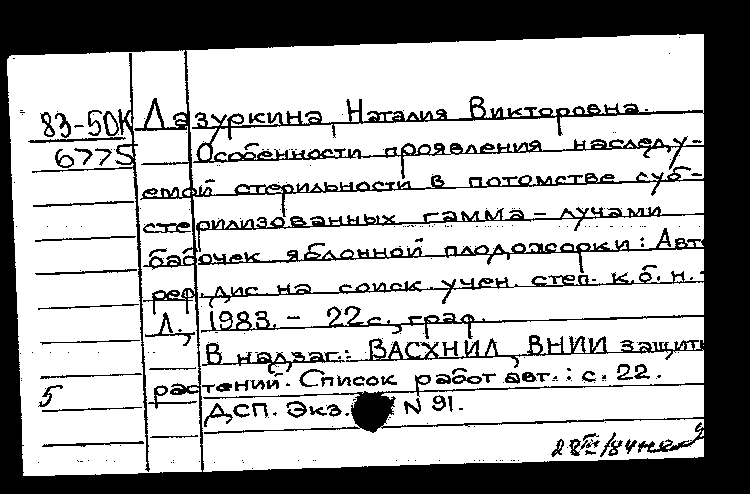 83-50К Лазуркина, Наталия Викторовна.
6775 Особенности проявления наследу-
емой стерильности в потомстве суб-
стерилизованных гамма-лучами
бабочек яблонной плодожорки: Авто
реф. дис на соиск. учен. степ. к.б.н.-
Л., 1983. - 22 с., граф.
В надзаг.: ВАСХНИЛ, ВНИИ защиты
5 растений. Список работ авт.: с. 22.
ДСП. Экз. N 91.